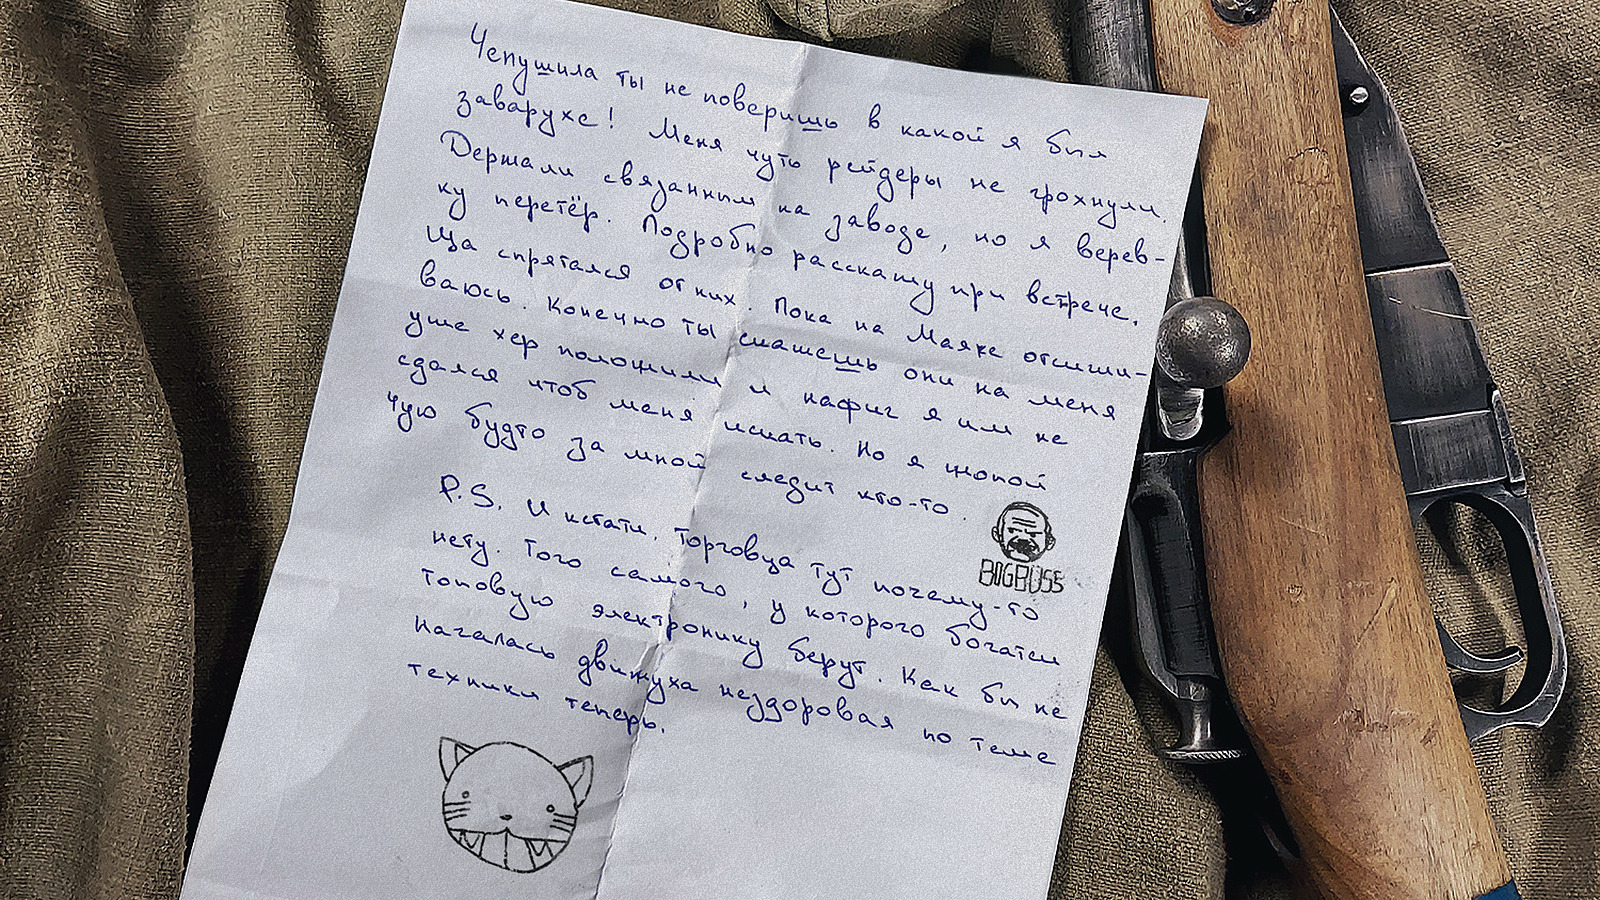 Чепушила ты не поверишь в какой я был
заварухе! Меня чуть рейдеры не грохнули.
Держали связанным на заводе, но я верев-
ку перетёр. Подробно расскажу при встрече.
Ща спрятался от них. Пока на Маяке отсижи-
ваюсь. Конечно ты скажешь они на меня
уже хер положили и нафиг я им не
сдался чтоб меня искать. Но я жопой
чую будто за мной следит кто-то.
P.S. И кстати, Торговца тут почему-то
нету. Того самого, у которого богатеи
топовую электронику берут. Как бы не
началась движуха нездоровая по теме
техники теперь.
BIGBOSS